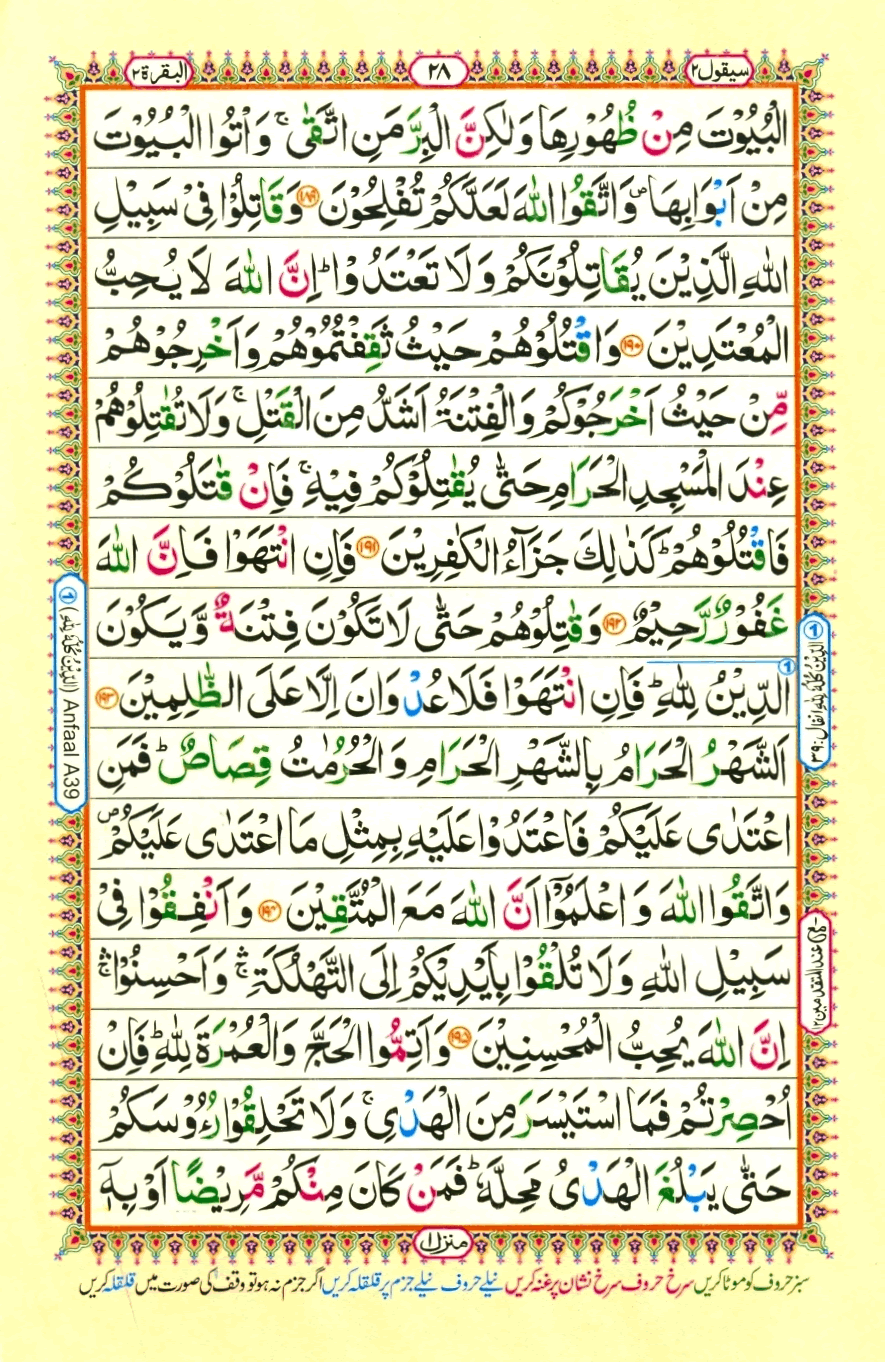 سيقول٢
٢٨
البقرة٢
الْبُيُوْتَ مِنْ ظُهُوْرِهَا وَلٰكِنَّ الْبِرَّ مَنِ اتَّقٰى ۚ وَاْتُوا الْبُيُوْتَ
مِنْ اَبْوَابِهَا ۪ وَاتَّقُوا اللّٰهَ لَعَلَّكُمْ تُفْلِحُوْنَ ۝١٨٩ وَقَاتِلُوْا فِىْ سَبِيْلِ
اللّٰهِ الَّذِيْنَ يُقَاتِلُوْنَكُمْ وَلَا تَعْتَدُوْا ؕ اِنَّ اللّٰهَ لَا يُحِبُّ
الْمُعْتَدِيْنَ ۝١٩٠ وَاقْتُلُوْهُمْ حَيْثُ ثَقِفْتُمُوْهُمْ وَاَخْرِجُوْهُمْ
مِّنْ حَيْثُ اَخْرَجُوْكُمْ وَالْفِتْنَةُ اَشَدُّ مِنَ الْقَتْلِ ۚ وَلَا تُقٰتِلُوْهُمْ
عِنْدَ الْمَسْجِدِ الْحَرَامِ حَتّٰى يُقٰتِلُوْكُمْ فِيْهِ ۚ فَاِنْ قٰتَلُوْكُمْ
فَاقْتُلُوْهُمْ ؕ كَذٰلِكَ جَزَآءُ الْكٰفِرِيْنَ ۝١٩١ فَاِنِ انْتَهَوْا فَاِنَّ اللّٰهَ
غَفُوْرٌ رَّحِيْمٌ ۝١٩٢ وَقٰتِلُوْهُمْ حَتّٰى لَا تَكُوْنَ فِتْنَةٌ وَّيَكُوْنَ
الدِّيْنُ لِلّٰهِ ؕ فَاِنِ انْتَهَوْا فَلَا عُدْوَانَ اِلَّا عَلَى الظّٰلِمِيْنَ ۝١٩٣
اَلشَّهْرُ الْحَرَامُ بِالشَّهْرِ الْحَرَامِ وَالْحُرُمٰتُ قِصَاصٌ ؕ فَمَنِ
اعْتَدٰى عَلَيْكُمْ فَاعْتَدُوْا عَلَيْهِ بِمِثْلِ مَا اعْتَدٰى عَلَيْكُمْ ۪
وَاتَّقُوا اللّٰهَ وَاعْلَمُوْۤا اَنَّ اللّٰهَ مَعَ الْمُتَّقِيْنَ ۝١٩٤ وَاَنْفِقُوْا فِىْ
سَبِيْلِ اللّٰهِ وَلَا تُلْقُوْا بِاَيْدِيْكُمْ اِلَى التَّهْلُكَةِ ۛۚ وَاَحْسِنُوْا ۛۚ
اِنَّ اللّٰهَ يُحِبُّ الْمُحْسِنِيْنَ ۝١٩٥ وَاَتِمُّوا الْحَجَّ وَالْعُمْرَةَ لِلّٰهِ ؕ فَاِنْ
اُحْصِرْتُمْ فَمَا اسْتَيْسَرَ مِنَ الْهَدْىِ ۚ وَلَا تَحْلِقُوْا رُءُوْسَكُمْ
حَتّٰى يَبْلُغَ الْهَدْىُ مَحِلَّهٗ ؕ فَمَنْ كَانَ مِنْكُمْ مَّرِيْضًا اَوْ بِهٖۤ
١ الدِّيْنُ كُلُّهٗ لِلّٰهِ انفال: ٣٩
مع عند المتقدمين ١٢
١ (الدِّيْنُ كُلُّهٗ لِلّٰهِ) Anfaal A39
منزل ١
سبز حروف کو موٹا کریں سرخ حروف سرخ نشان پر غنہ کریں نیلے حروف نیلے جزم پر قلقلہ کریں اگر جزم نہ ہو تو وقف کی صورت میں قلقلہ کریں